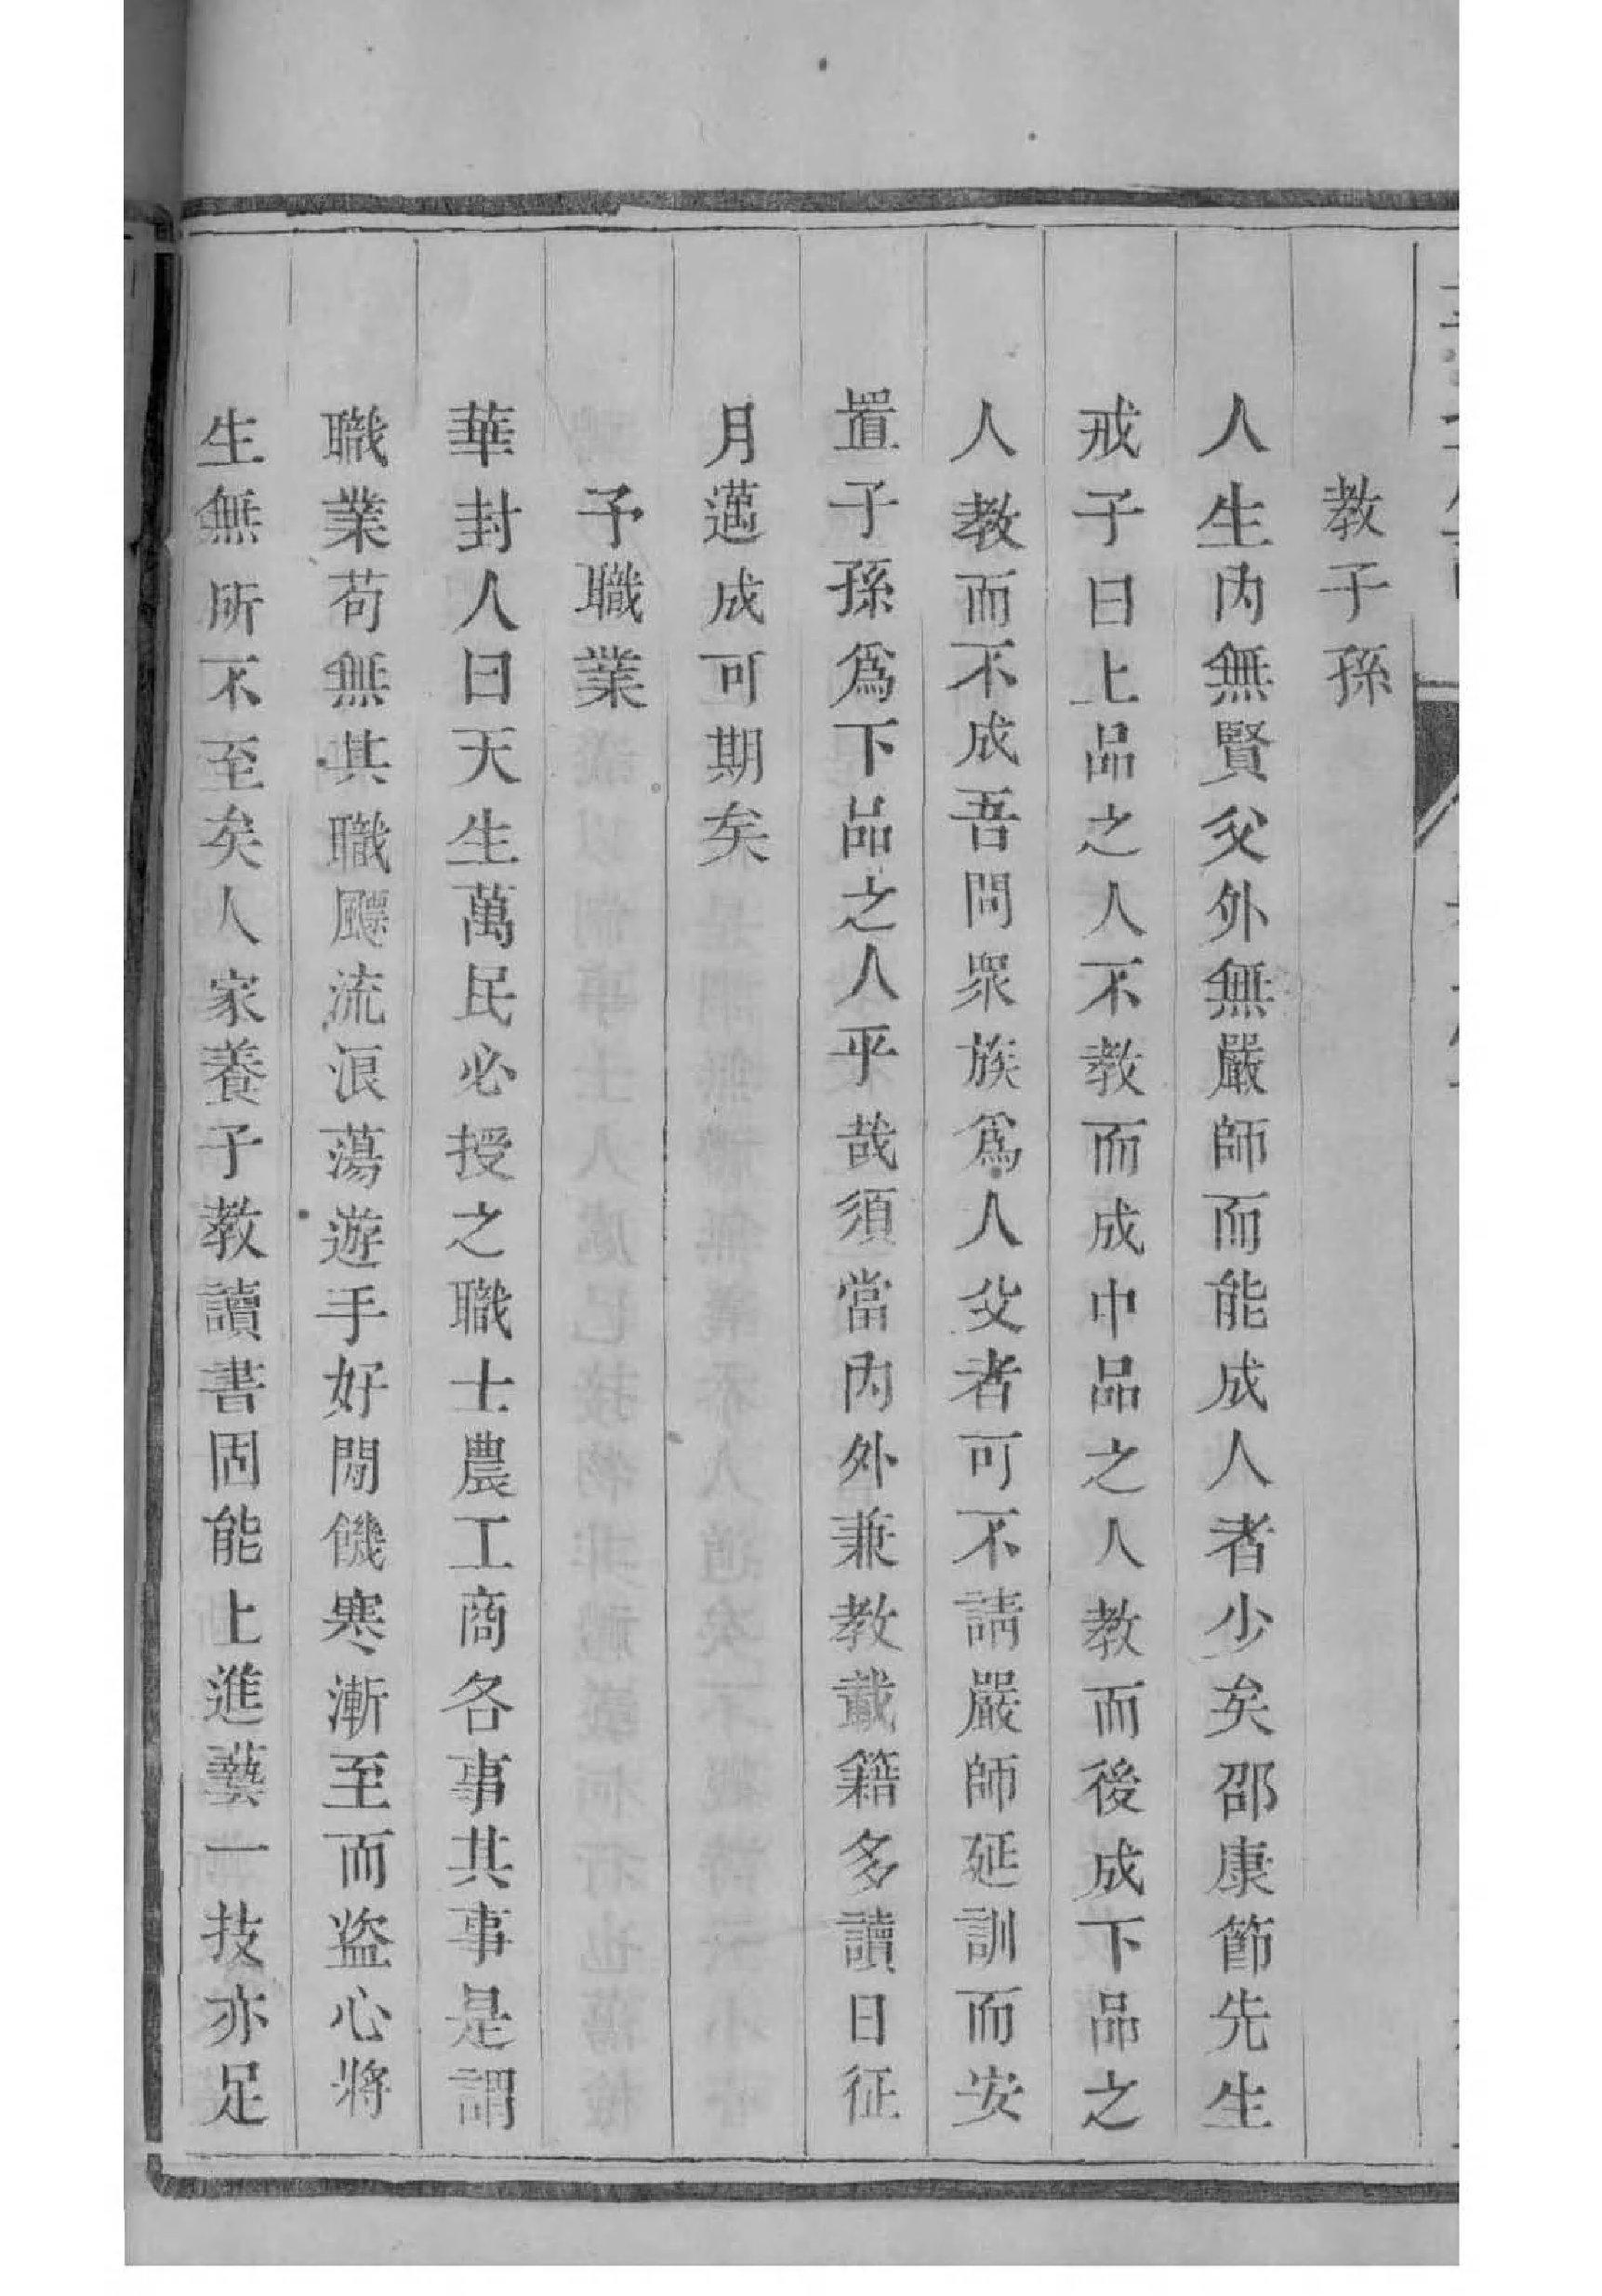 教子孫
人生內無賢父外無嚴師而能成人者少矣邵康節先生
戒子曰上品之人不教而成中品之人教而後成下品之
人教而不成吾問眾族爲人父者可不請嚴師延訓而安
置子孫爲下品之人乎哉須當內外兼教載籍多讀日征
月邁成可期矣
予職業
華封人曰天生萬民必授之職士農工商各事其事是謂
職業苟無其職飃流浪蕩遊手好閒饑寒漸至而盜心將
生無所不至矣人家養子教讀書固能上進藝一技亦足